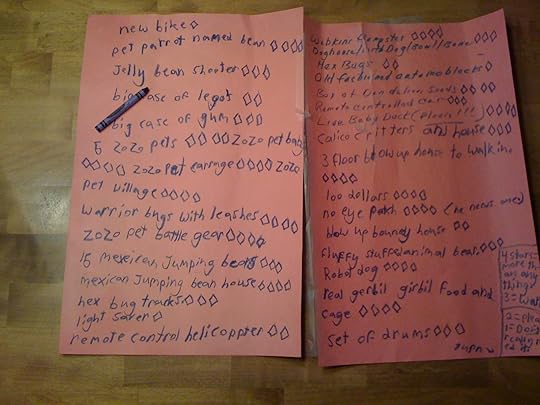 new bike ◊
pet parrot named bean ◊◊◊◊
Jelly bean shooter ◊◊◊
big case of legos ◊◊
big case of gum ◊◊
5 zozo pets ◊◊◊◊ zozo pet bugs
◊◊◊◊ zozo pet earrage ◊◊◊◊ zozo
pet village ◊◊◊◊
warrior bugs with leashes ◊◊◊◊
zozo pet battle gear ◊◊◊◊
15 mexerican Jumping beans ◊◊◊◊
mexerican Jumping bean house ◊◊◊◊
hex bug tracks ◊◊◊
light saver ◊
remote control helicoppter ◊◊
Webkinz ◊◊◊◊
Doghouse/
Hex Bugs ◊◊
Old fashinild automoblocks ◊
Box of Dandelion Seeds ◊◊
Remote controlled car ◊◊◊
Live Baby Duck (Please!!!) ◊◊◊◊
Calico Critters and house ◊◊◊
3 floor blow up house to walk in
◊◊◊◊
100 dollars ◊◊◊◊
no eye patch ◊◊◊◊ (ne news ones)
blow up bouncy house ◊◊
fluffy stuffedanimal bear ◊◊◊
Robot dog ◊◊◊◊
real gerbil girbil food and
cage ◊◊◊◊
set of drums ◊◊◊
turn
4 stars=
more th
an any
things
3= want
2= plea
1= Dont
really ne
ed it